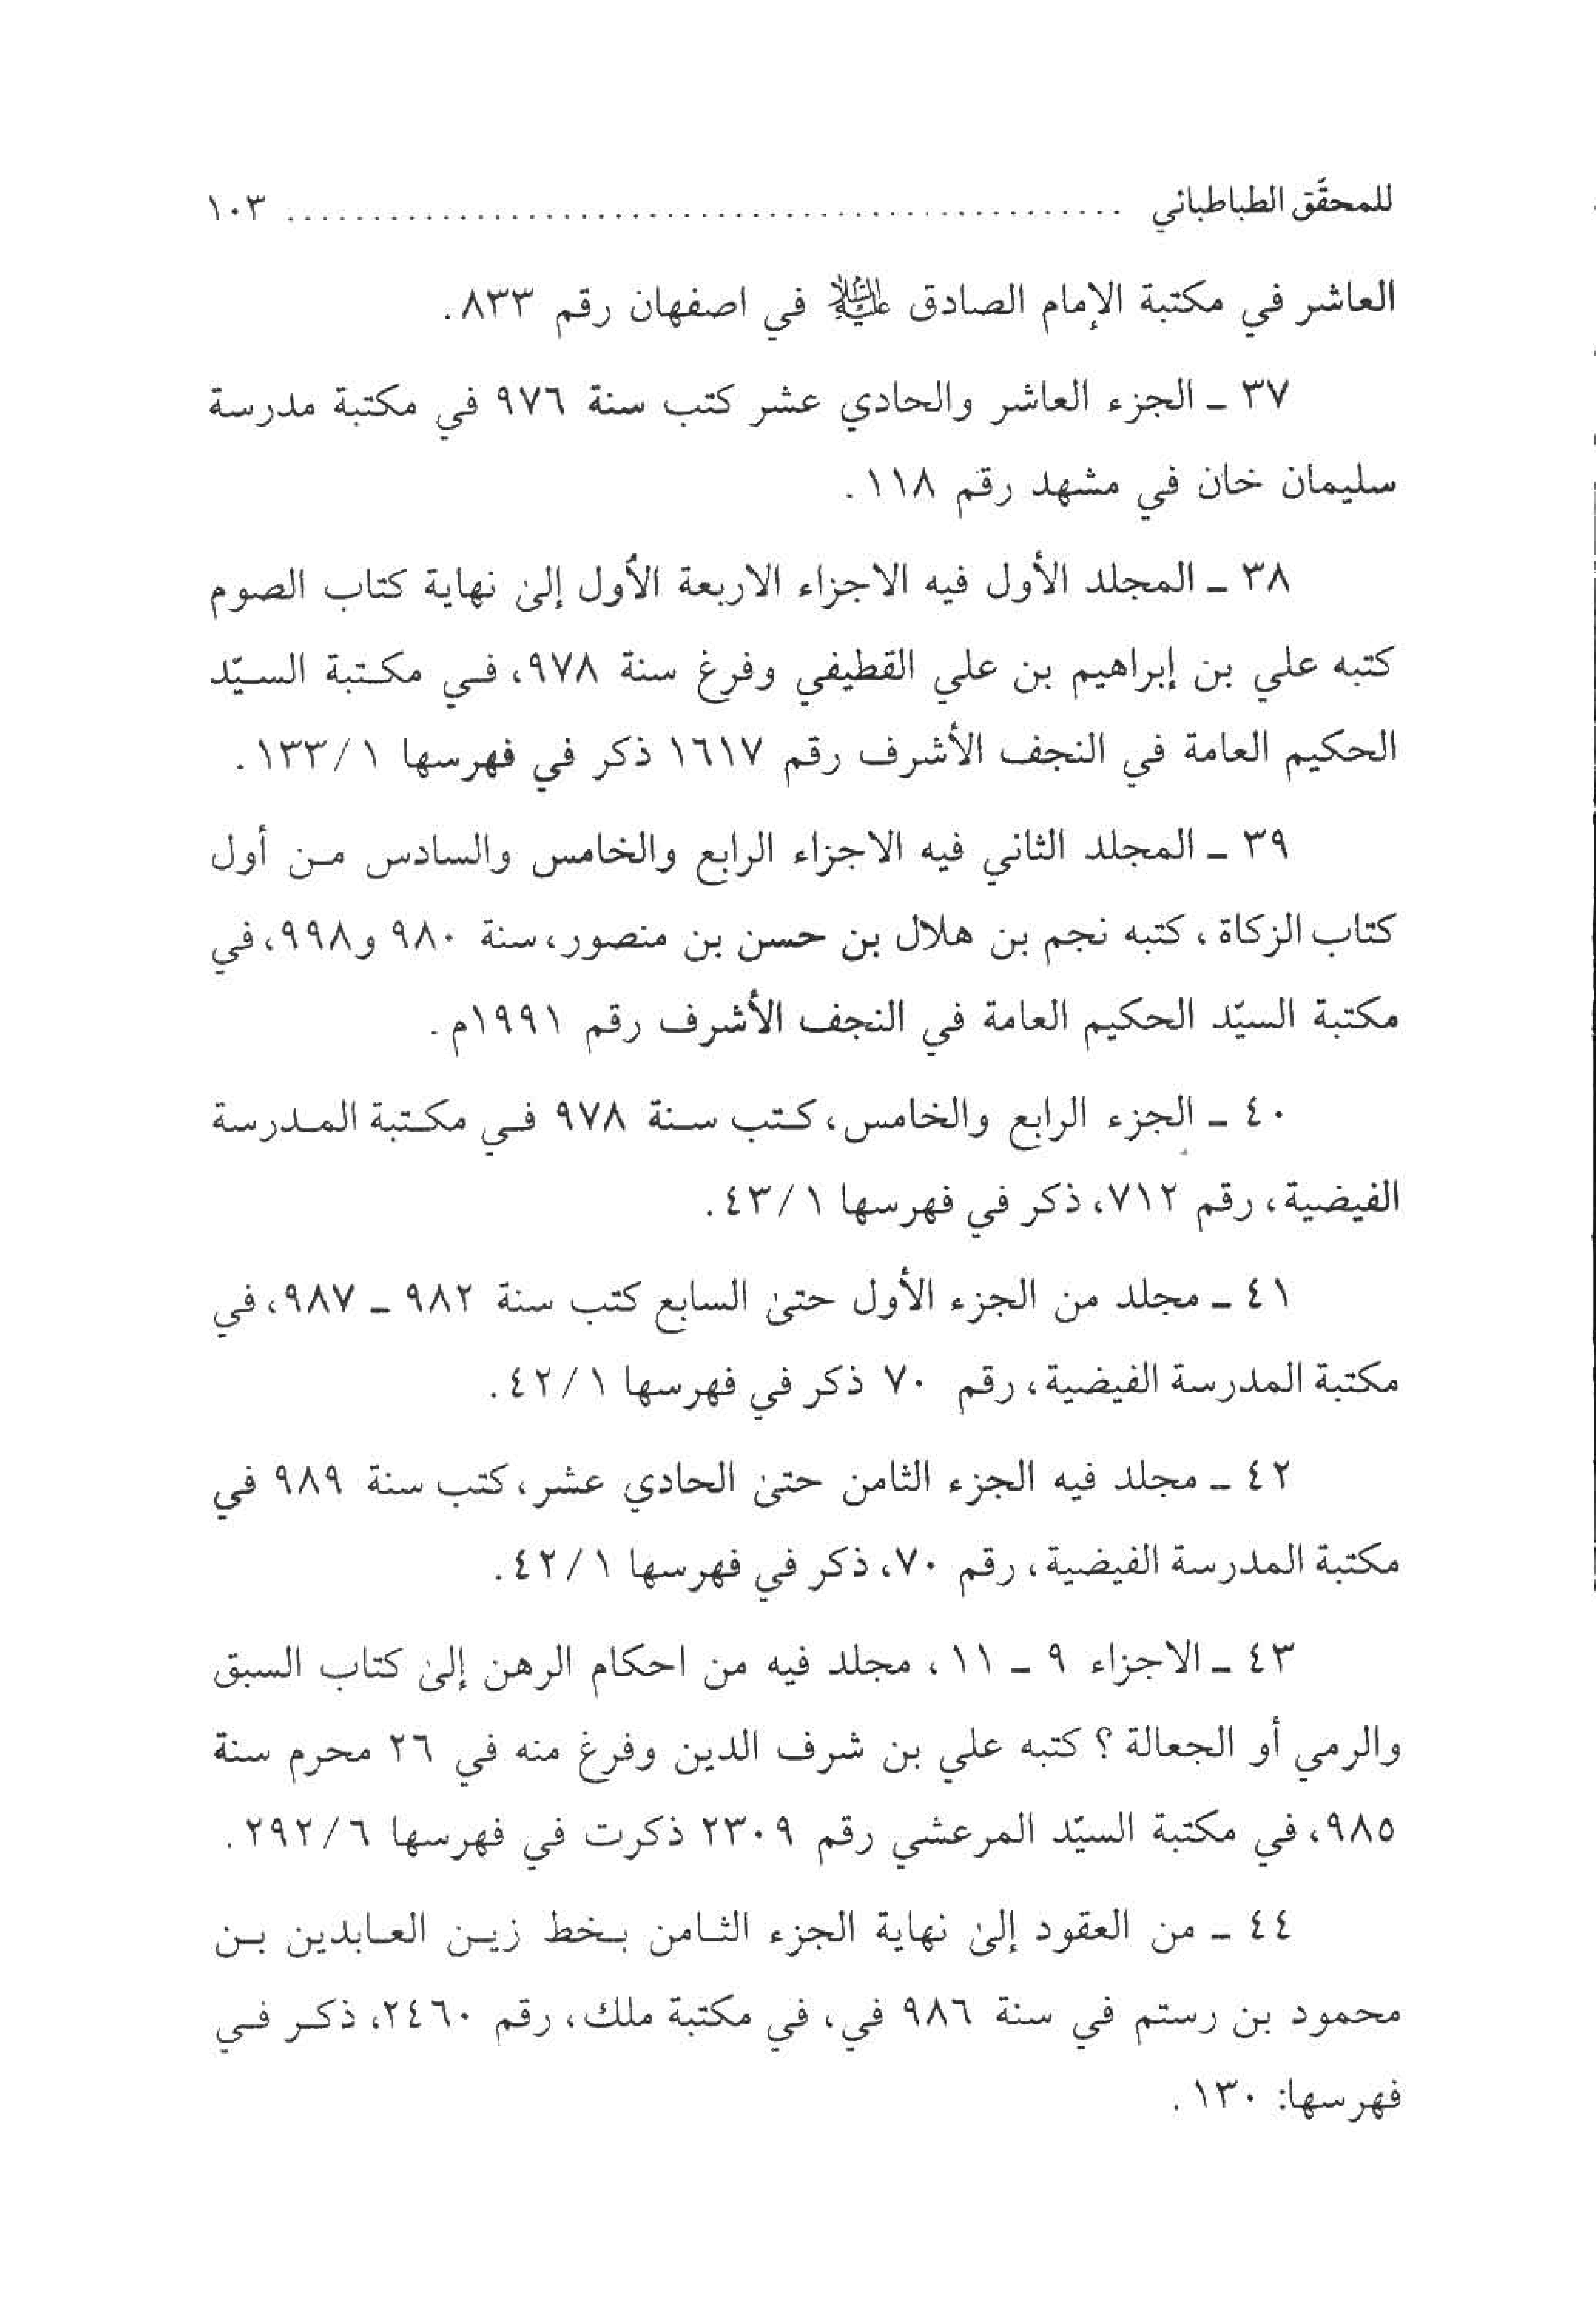 للمحقَّق الطباطبائي ................................................ ١٠٣
العاشر في مكتبة الإمام الصادق عليه السلام في اصفهان رقم ٨٣٣.
٣٧ ـ الجزء العاشر والحادي عشر كتب سنة ٩٧٦ في مكتبة مدرسة
سليمان خان في مشهد رقم ١١٨.
٣٨ ـ المجلد الأول فيه الاجزاء الاربعة الأول إلىٰ نهاية كتاب الصوم
كتبه علي بن إبراهيم بن علي القطيفي وفرغ سنة ٩٧٨، في مكتبة السيّد
الحكيم العامة في النجف الأشرف رقم ١٦١٧ ذكر في فهرسها ١/ ١٣٣.
٣٩ ـ المجلد الثاني فيه الاجزاء الرابع والخامس والسادس من أول
كتاب الزكاة، كتبه نجم بن هلال بن حسن بن منصور، سنة ٩٨٠ و٩٩٨، في
مكتبة السيّد الحكيم العامة في النجف الأشرف رقم ١٩٩١م.
٤٠ ـ الجزء الرابع والخامس، كتب سنة ٩٧٨ في مكتبة المدرسة
الفيضية، رقم ٧١٢، ذكر في فهرسها ١/ ٤٣.
٤١ ـ مجلد من الجزء الأول حتىٰ السابع كتب سنة ٩٨٢ ـ ٩٨٧، في
مكتبة المدرسة الفيضية، رقم ٧٠ ذكر في فهرسها ١/ ٤٢.
٤٢ ـ مجلد فيه الجزء الثامن حتىٰ الحادي عشر، كتب سنة ٩٨٩ في
مكتبة المدرسة الفيضية، رقم ٧٠، ذكر في فهرسها ١/ ٤٢.
٤٣ ـ الاجزاء ٩ ـ ١١، مجلد فيه من احكام الرهن إلىٰ كتاب السبق
والرمي أو الجعالة؟ كتبه علي بن شرف الدين وفرغ منه في ٢٦ محرم سنة
٩٨٥، في مكتبة السيّد المرعشي رقم ٢٣٠٩ ذكرت في فهرسها ٦/ ٢٩٢.
٤٤ ـ من العقود إلىٰ نهاية الجزء الثامن بخط زين العابدين بن
محمود بن رستم في سنة ٩٨٦ في، في مكتبة ملك، رقم ٢٤٦٠، ذكر في
فهرسها: ١٣٠.